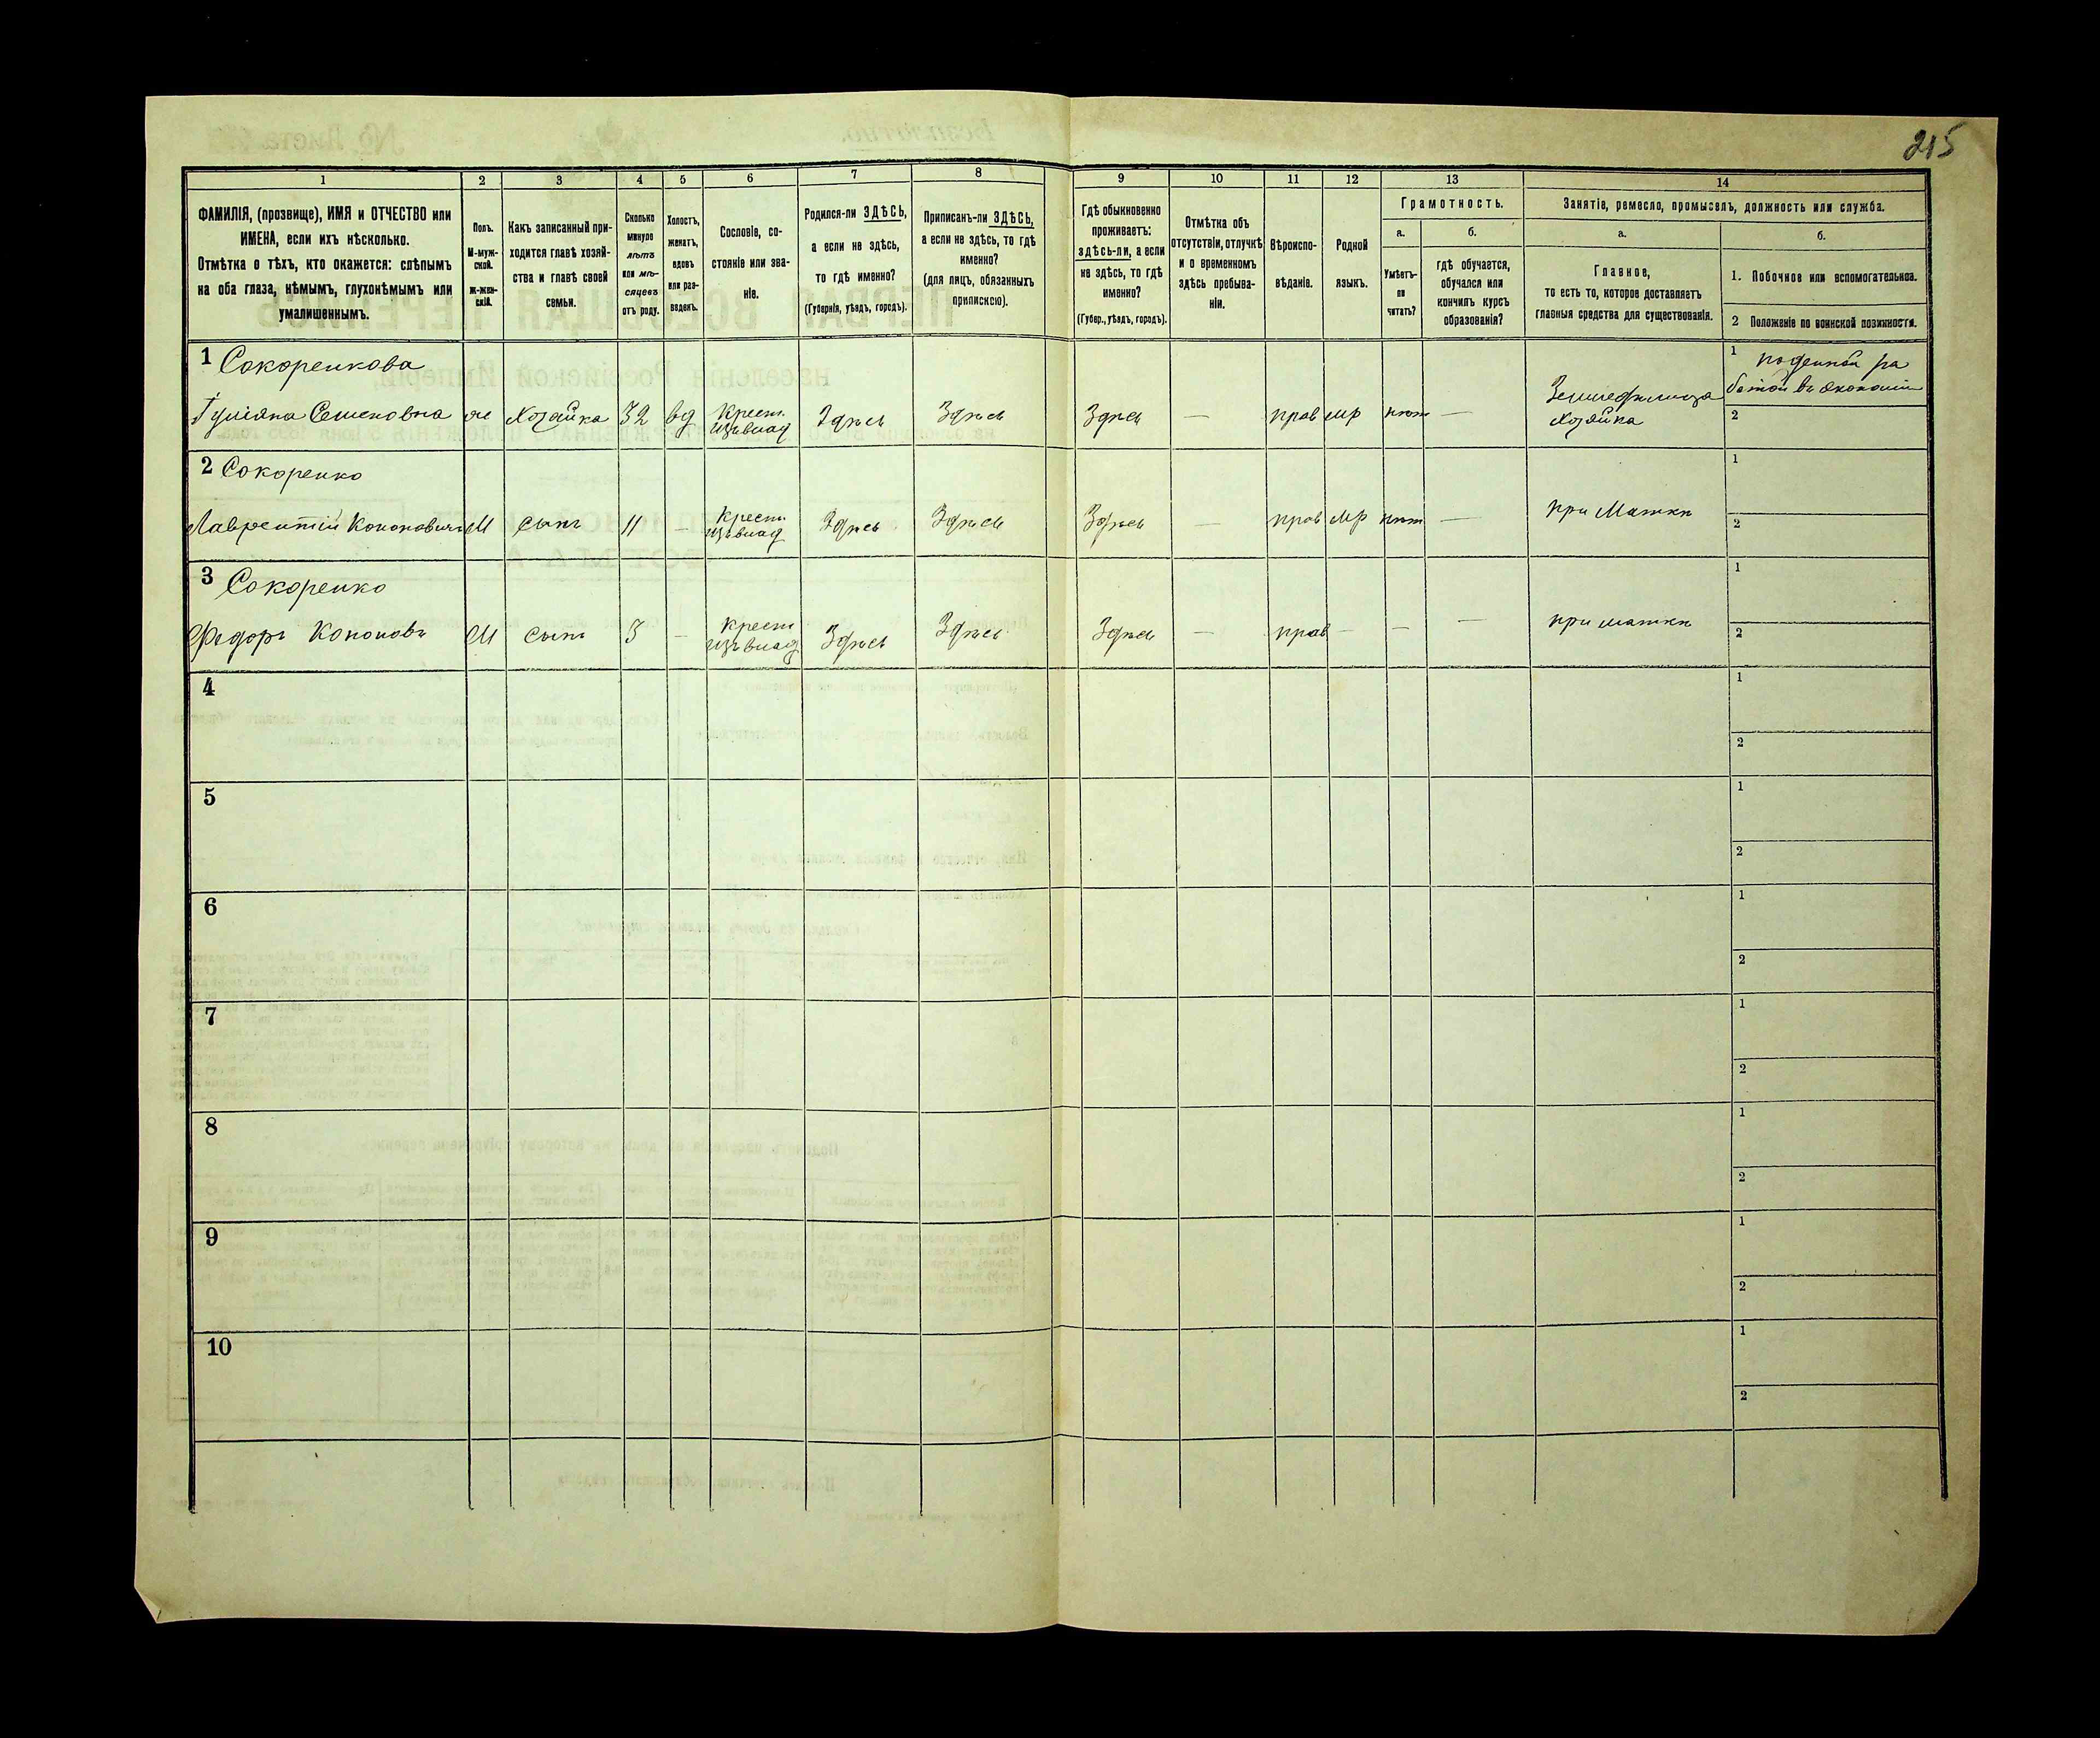 215
1
2
3
4
5
6
7
8
9
10
11
12
13
14
ФАМИЛІЯ, (прозвище), ИМЯ и ОТЧЕСТВО или
ИМЕНА, если ихъ нѣсколько.
Отмѣтка о тѣхъ, кто окажется: слѣпымъ
на оба глаза, нѣмымъ, глухонѣмымъ или
умалишеннымъ.
Полъ.
М-муж-
ской.
ж-жен-
скій.
Какъ записанный при-
ходится главѣ хозяй-
ства и главѣ своей
семьи.
Сколько
минуло
лѣтъ
или мѣ-
сяцевъ
отъ роду.
Холостъ,
женатъ,
вдовъ
или раз-
веденъ.
Сословіе, со-
стояніе или зва-
ніе.
Родился-ли ЗДѢСЬ,
а если не здѣсь,
то гдѣ именно?
(Губернія, уѣздъ, городъ).
Приписанъ-ли ЗДѢСЬ,
а если не здѣсь, то гдѣ
именно?
(для лицъ, обязанныхъ
припискою).
Гдѣ обыкновенно
проживаетъ:
здѣсь-ли, а если
не здѣсь, то гдѣ
именно?
(Губер., уѣздъ, городъ).
Отмѣтка объ
отсутствіи, отлучкѣ
и о временномъ
здѣсь пребыва-
ніи.
Вѣроиспо-
вѣданіе.
Родной
языкъ.
Грамотность.
а.
Умѣетъ-
ли
читать?
б.
гдѣ обучается,
обучался или
кончилъ курсъ
образованія?
Занятіе, ремесло, промыселъ, должность или служба.
а.
Главное,
то есть то, которое доставляетъ
главныя средства для существованія.
б.
1. Побочное или вспомогательное.
2 Положеніе по воинской повинности.
1 Сокоренкова
Семеновна
же
Хозяйка
32
вд
Крест.
изъ влад
Здѣсь
Здѣсь
Здѣсь
—
прав
мр
нѣт
—
Хозяйка
1 поденной ра
ботой въ экономіи
2
2 Сокоренко
Лаврентій Кононовичъ
М
сынъ
11
—
Крест.
изъ влад
Здѣсь
Здѣсь
Здѣсь
—
прав
мр
нѣт
—
при Маткѣ
1
2
3 Сокоренко
Федоръ Кононовъ
М
сынъ
3
—
крест
изъ влад
Здѣсь
Здѣсь
Здѣсь
—
прав
—
—
—
при маткѣ
1
2
4
1
2
5
1
2
6
1
2
7
1
2
8
1
2
9
1
2
10
1
2